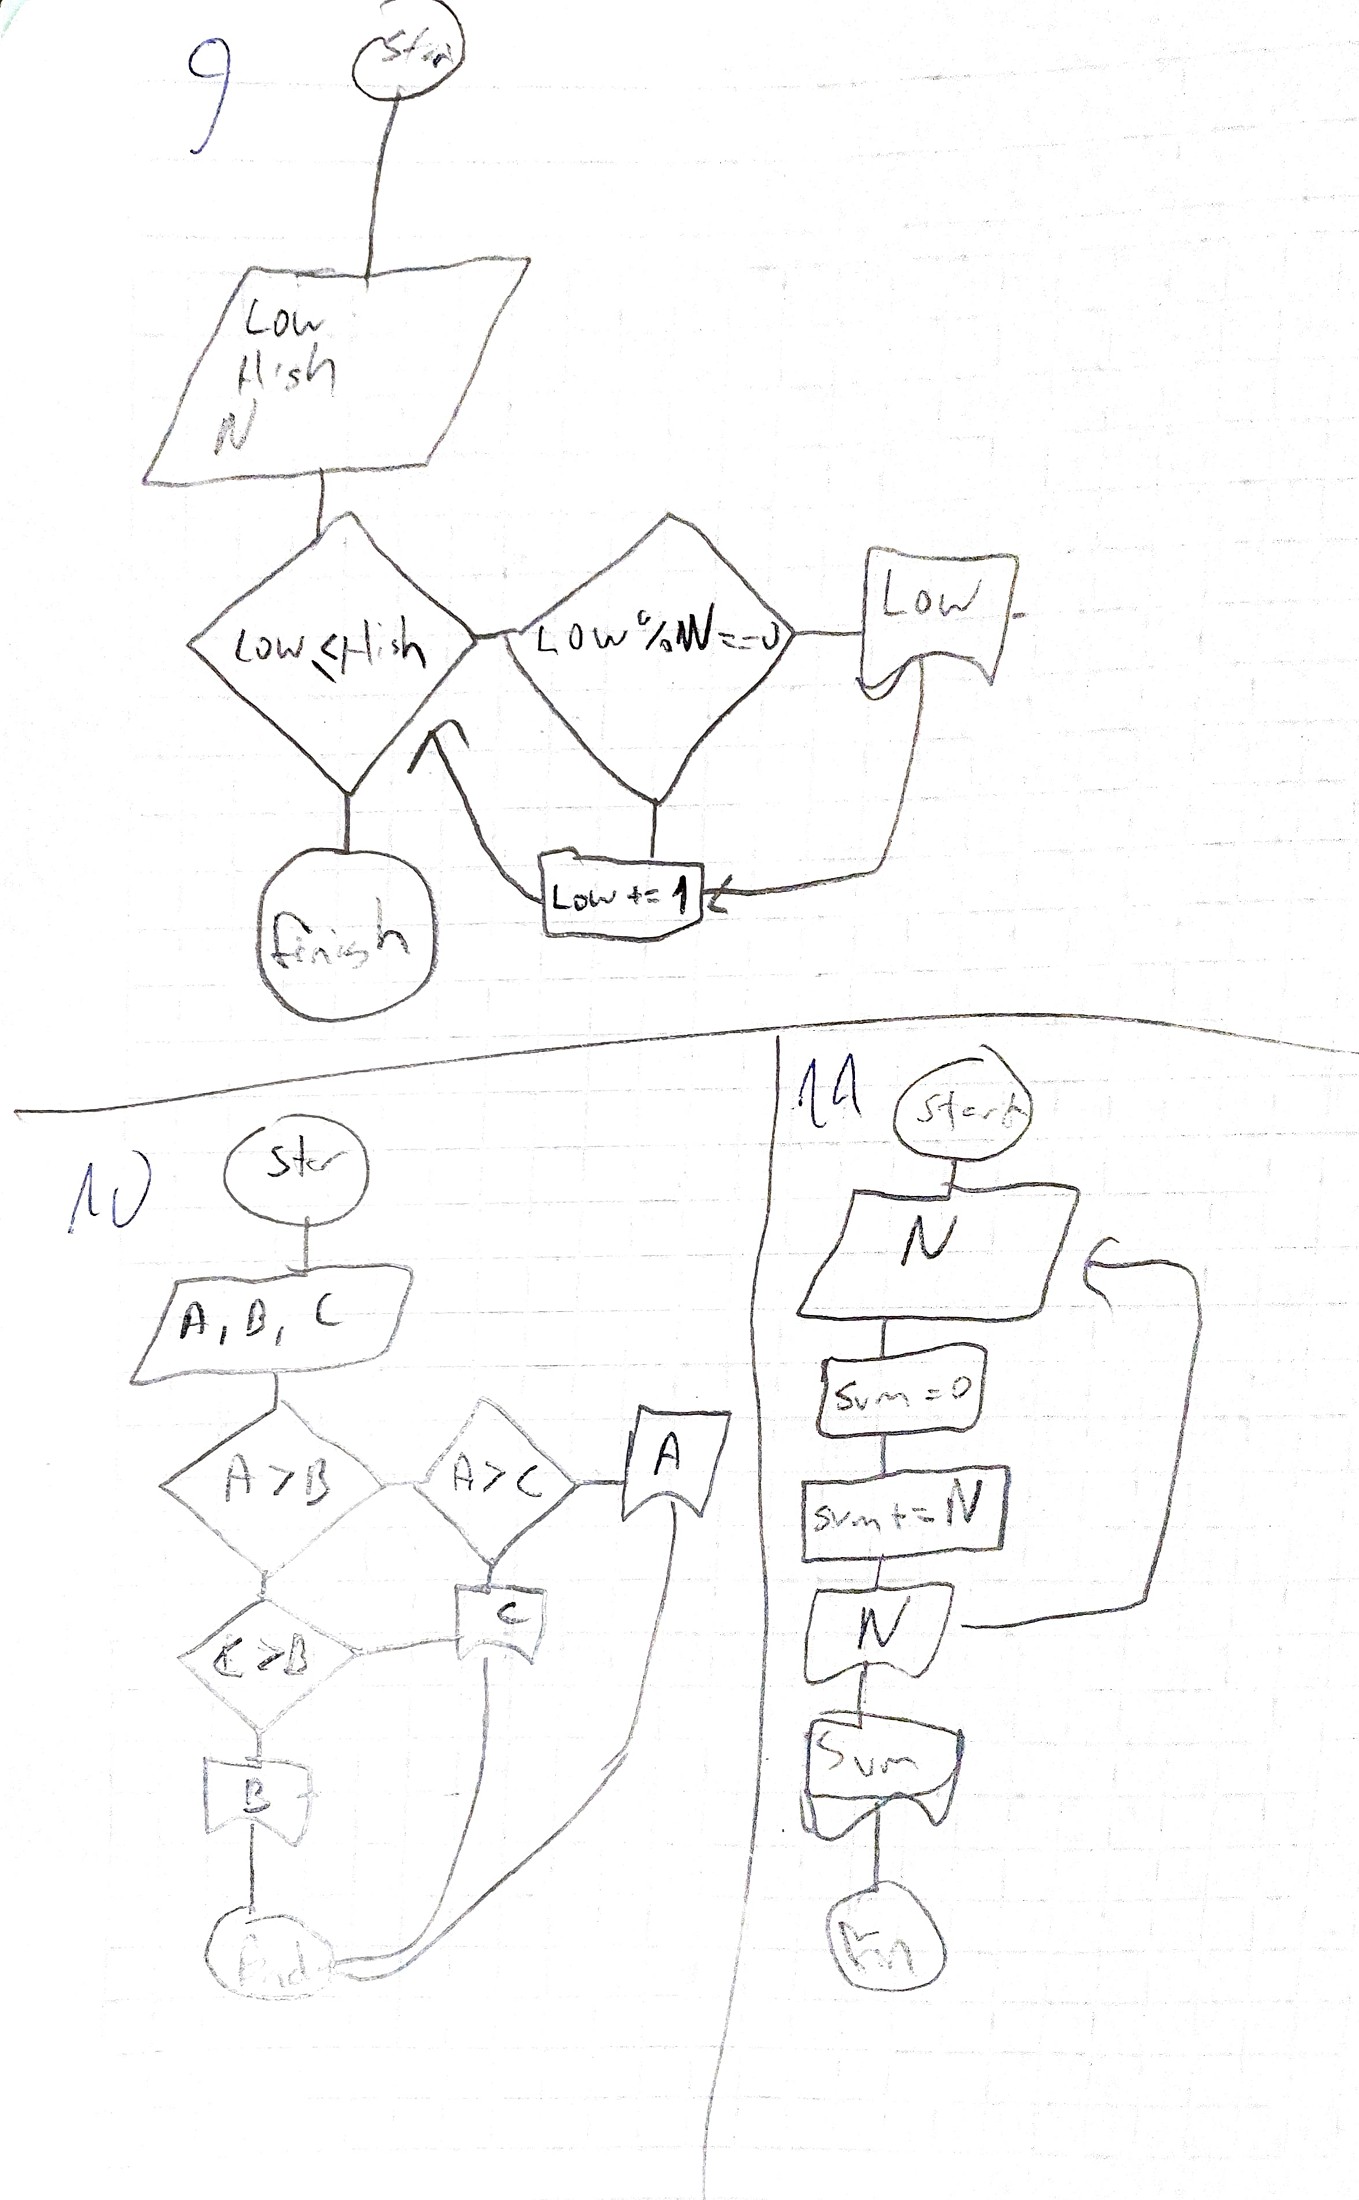 9
Low
High
N
Low ≤ High
Low % N == 0
Low
Low += 1
finish
10
Star
A, B, C
A > B
A > C
A
C
C > B
B
End
11
Start
N
Sum = 0
sum += N
N
Sum
Fin